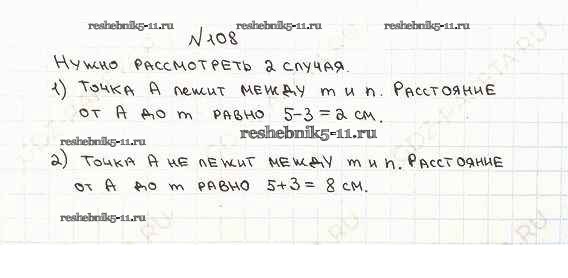 reshebnik5-11.ru
№108
Нужно рассмотреть 2 случая.
1) Точка А лежит между m и n. Расстояние
от А до m равно 5-3=2 см.
reshebnik5-11.ru
reshebnik5-11.ru
2) Точка А не лежит между m и n. Расстояние
от А до m равно 5+3= 8 см.
reshebnik5-11.ru